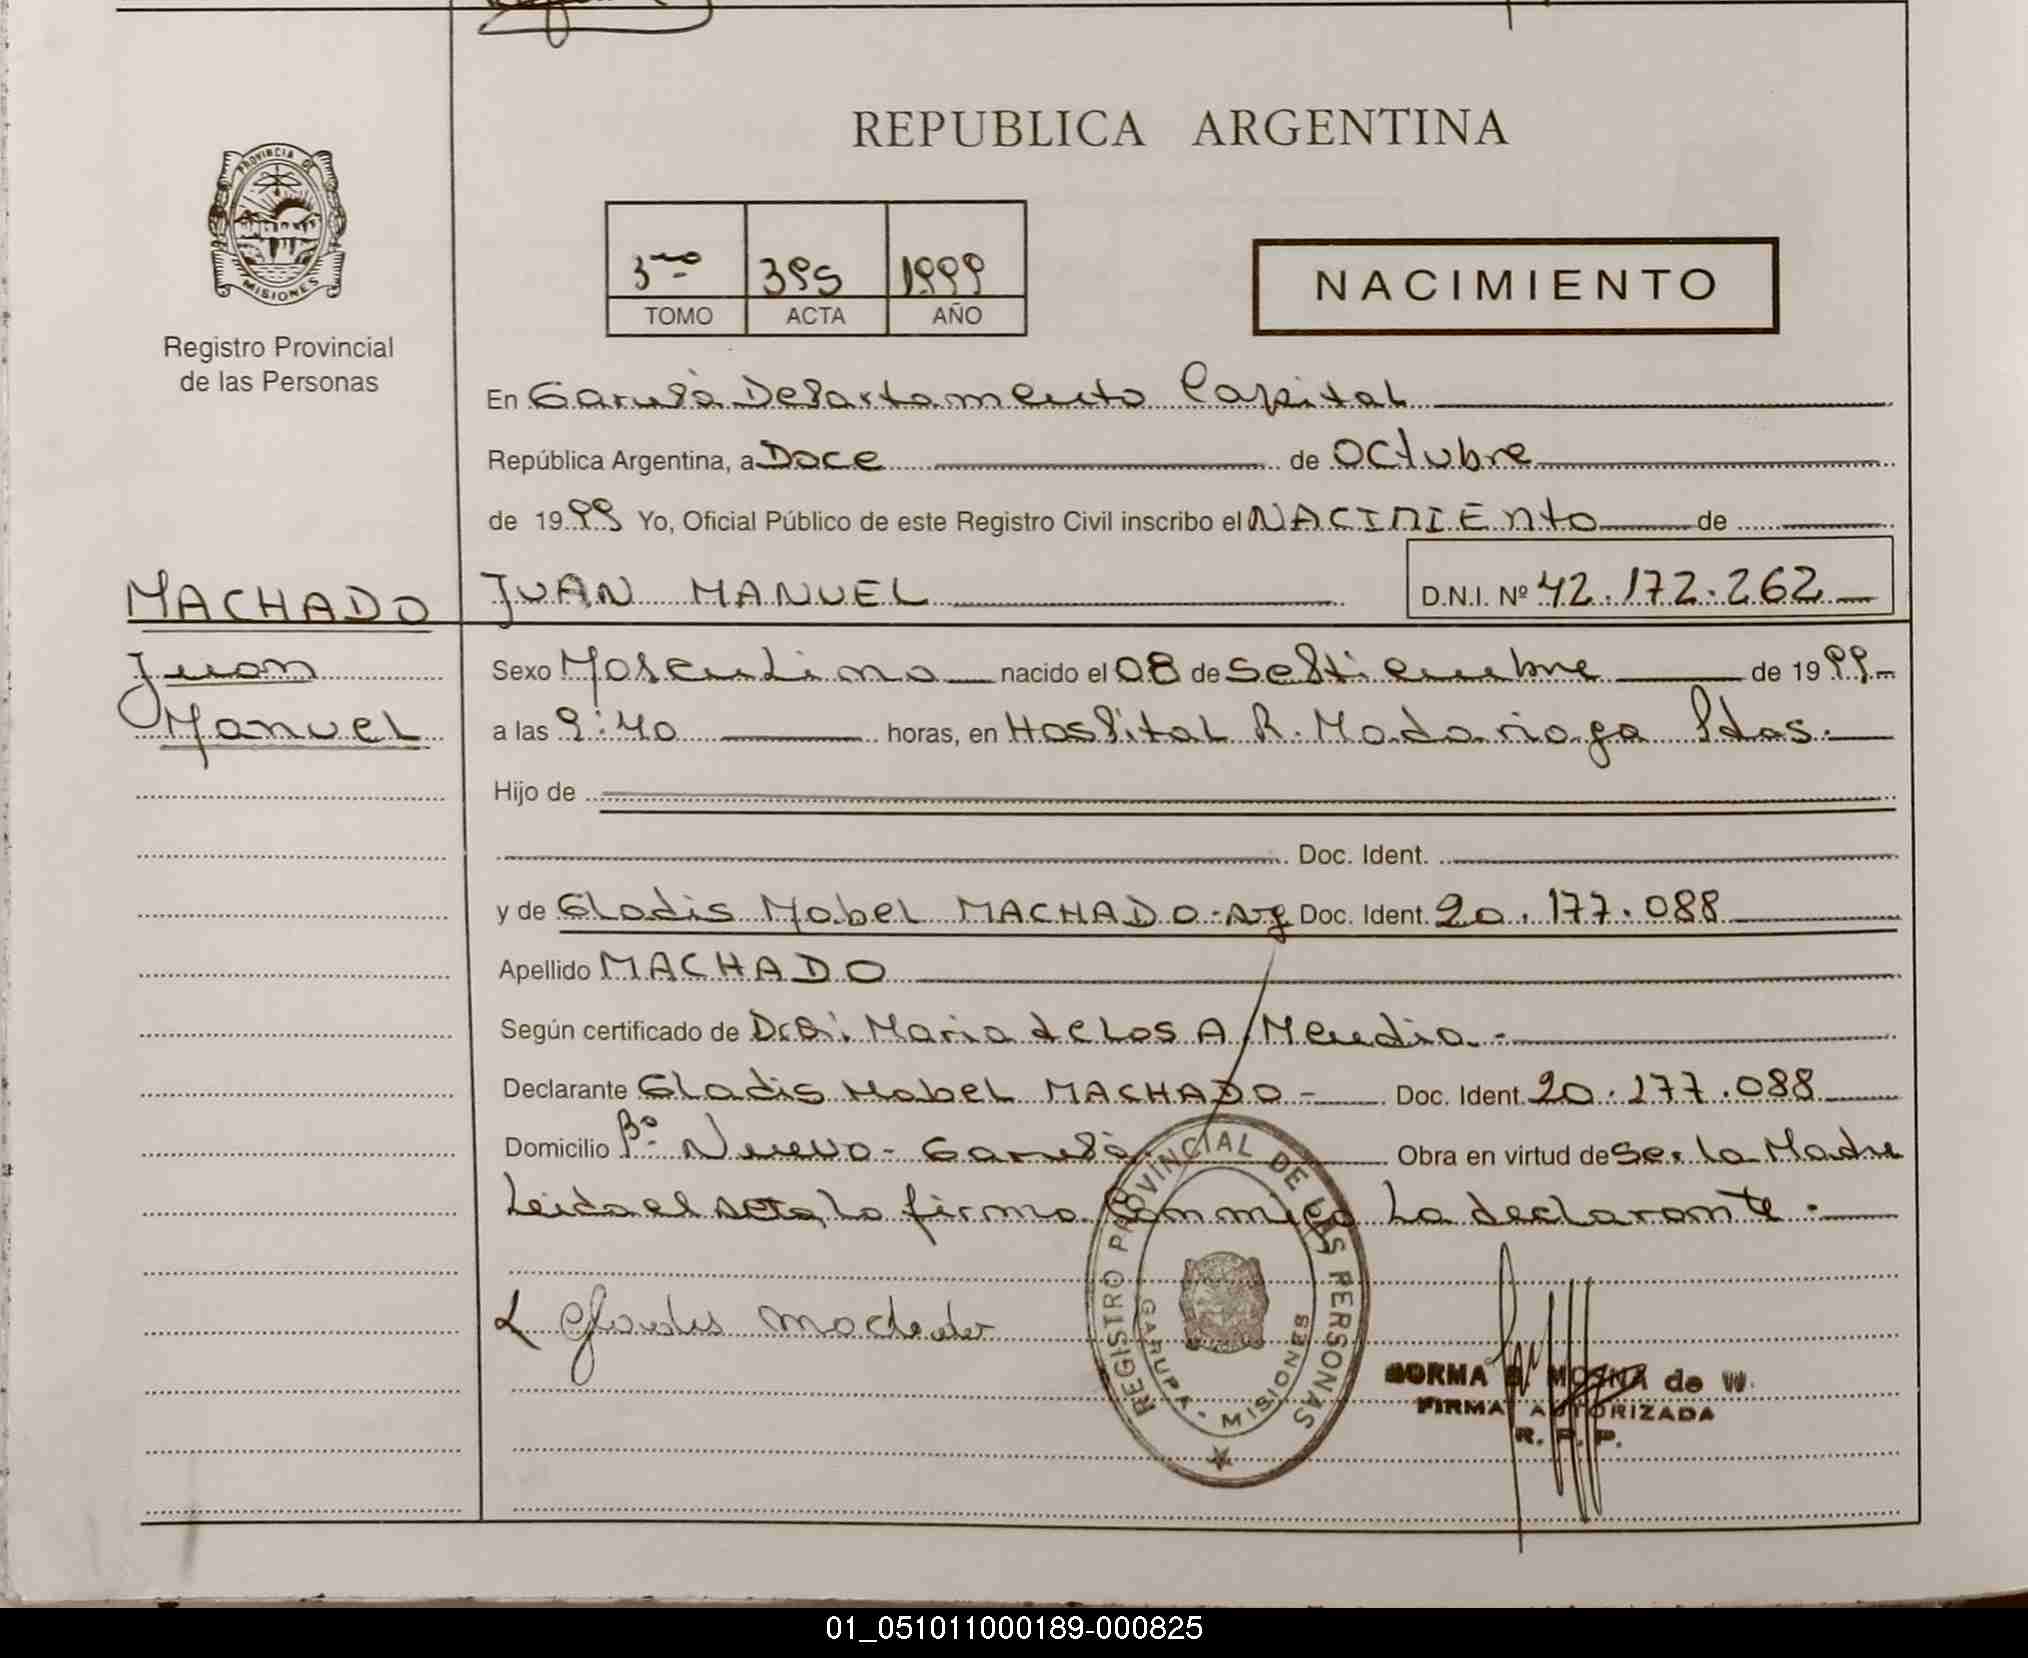 REPUBLICA ARGENTINA
PROVINCIA DE
MISIONES
Registro Provincial
de las Personas
3ro 395 1999
TOMO ACTA AÑO
NACIMIENTO
En Garupá Departamento Capital
República Argentina, a Doce de Octubre
de 1999 Yo, Oficial Público de este Registro Civil inscribo el NACIMIENTO de
MACHADO JUAN MANUEL D.N.I. Nº 42.172.262
Juan Sexo Masculino nacido el 08 de Septiembre de 1999.-
Manuel a las 9:40 horas, en Hospital R. Madariaga Pdas.
Hijo de
Doc. Ident.
y de Gladis Mabel MACHADO - Arg Doc. Ident. 20.177.088
Apellido MACHADO
Según certificado de Dra: Maria de Los A. Mendia.-
Declarante Gladis Mabel MACHADO - Doc. Ident. 20.177.088
Domicilio Bº Nuevo - Garupá Obra en virtud de Ser la Madre
Leida el acta, la firma Conmigo La declarante.
Gladis Machado
REGISTRO PROVINCIAL DE LAS PERSONAS
GARUPA - MISIONES
NORMA MOSNA de W.
FIRMA AUTORIZADA
R. P. P.
01_051011000189-000825